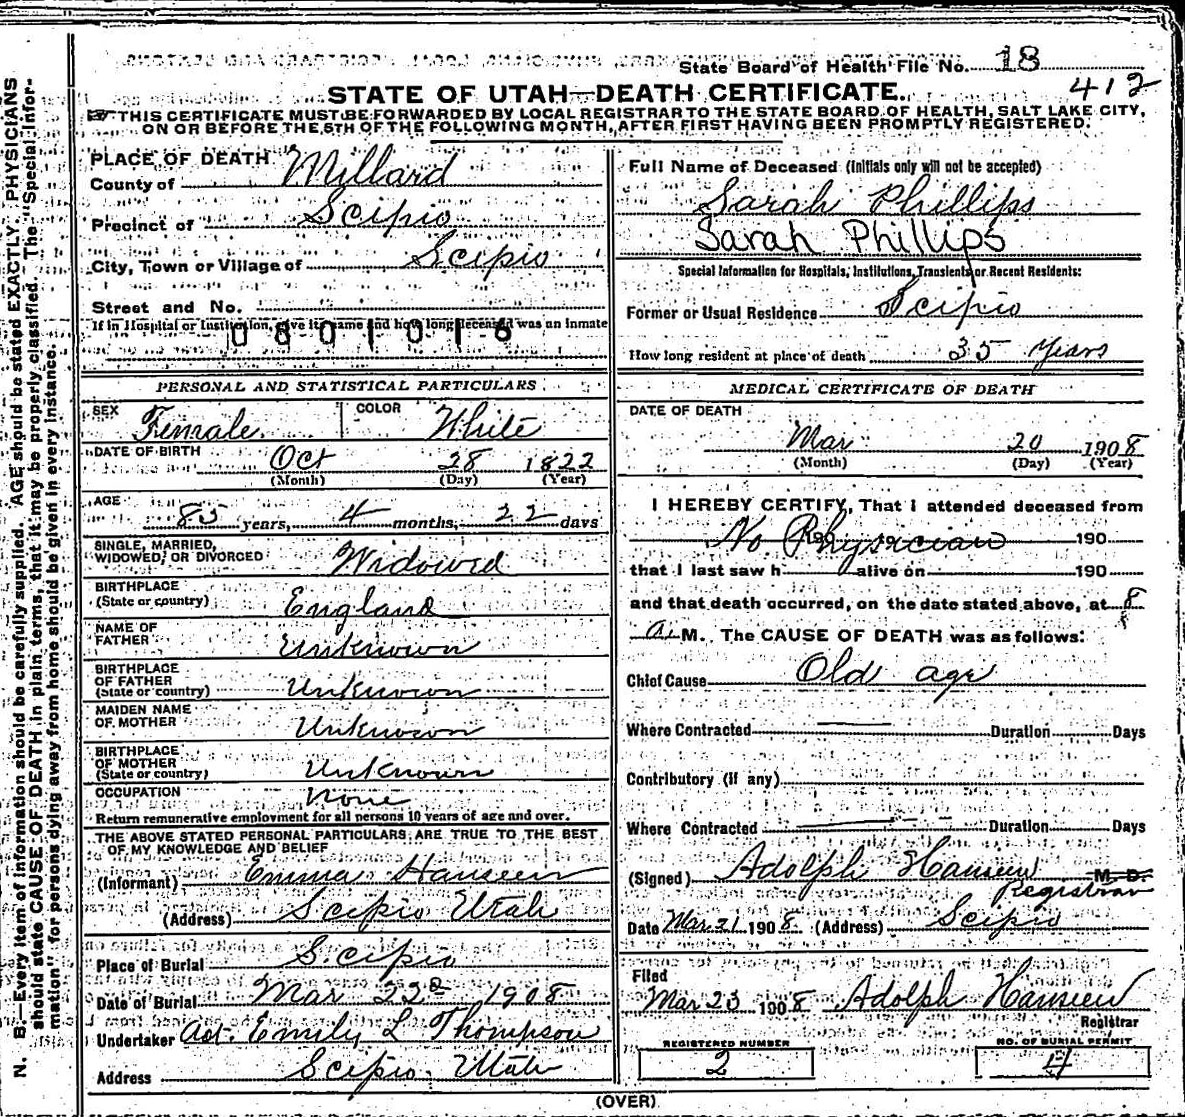 State Board of Health File No. 18
412
STATE OF UTAH—DEATH CERTIFICATE.
THIS CERTIFICATE MUST BE FORWARDED BY LOCAL REGISTRAR TO THE STATE BOARD OF HEALTH, SALT LAKE CITY,
ON OR BEFORE THE 5TH OF THE FOLLOWING MONTH, AFTER FIRST HAVING BEEN PROMPTLY REGISTERED.
N. B.—Every item of information should be carefully supplied. AGE should be stated EXACTLY. PHYSICIANS
should state CAUSE OF DEATH in plain terms, that it may be properly classified. The "Special Infor-
mation" for persons dying away from home should be given in every instance.
PLACE OF DEATH
County of Millard
Precinct of Scipio
City, Town or Village of Scipio
Street and No.
If in Hospital or Institution, give its name and how long deceased was an inmate
0801016
PERSONAL AND STATISTICAL PARTICULARS
SEX Female COLOR White
DATE OF BIRTH Oct 28 1822
(Month) (Day) (Year)
AGE 85 years, 4 months, 22 days
SINGLE, MARRIED,
WIDOWED, OR DIVORCED Widowed
BIRTHPLACE
(State or country) England
NAME OF
FATHER Unknown
BIRTHPLACE
OF FATHER
(State or country) Unknown
MAIDEN NAME
OF MOTHER Unknown
BIRTHPLACE
OF MOTHER
(State or country) Unknown
OCCUPATION None
Return remunerative employment for all persons 10 years of age and over.
THE ABOVE STATED PERSONAL PARTICULARS ARE TRUE TO THE BEST
OF MY KNOWLEDGE AND BELIEF
(Informant) Emma Hanseen
(Address) Scipio Utah
Place of Burial Scipio
Date of Burial Mar 22d 1908
Undertaker Act. Emily L Thompson
Address Scipio Utah
Full Name of Deceased (Initials only will not be accepted)
Sarah Phillips
Sarah Phillips
Special Information for Hospitals, Institutions, Transients or Recent Residents:
Former or Usual Residence Scipio
How long resident at place of death 35 Years
MEDICAL CERTIFICATE OF DEATH
DATE OF DEATH
Mar 20 1908
(Month) (Day) (Year)
I HEREBY CERTIFY, That I attended deceased from
No Physician 190
that I last saw h alive on 190
and that death occurred, on the date stated above, at 8
A. M. The CAUSE OF DEATH was as follows:
Chief Cause Old age
Where Contracted Duration Days
Contributory (if any)
Where Contracted Duration Days
(Signed) Adolph Hanseen M. D.
Registrar
Date Mar 21 1908 (Address) Scipio
Filed
Mar 23 1908 Adolph Hanseen
Registrar
REGISTERED NUMBER
2
NO. OF BURIAL PERMIT
4
(OVER)